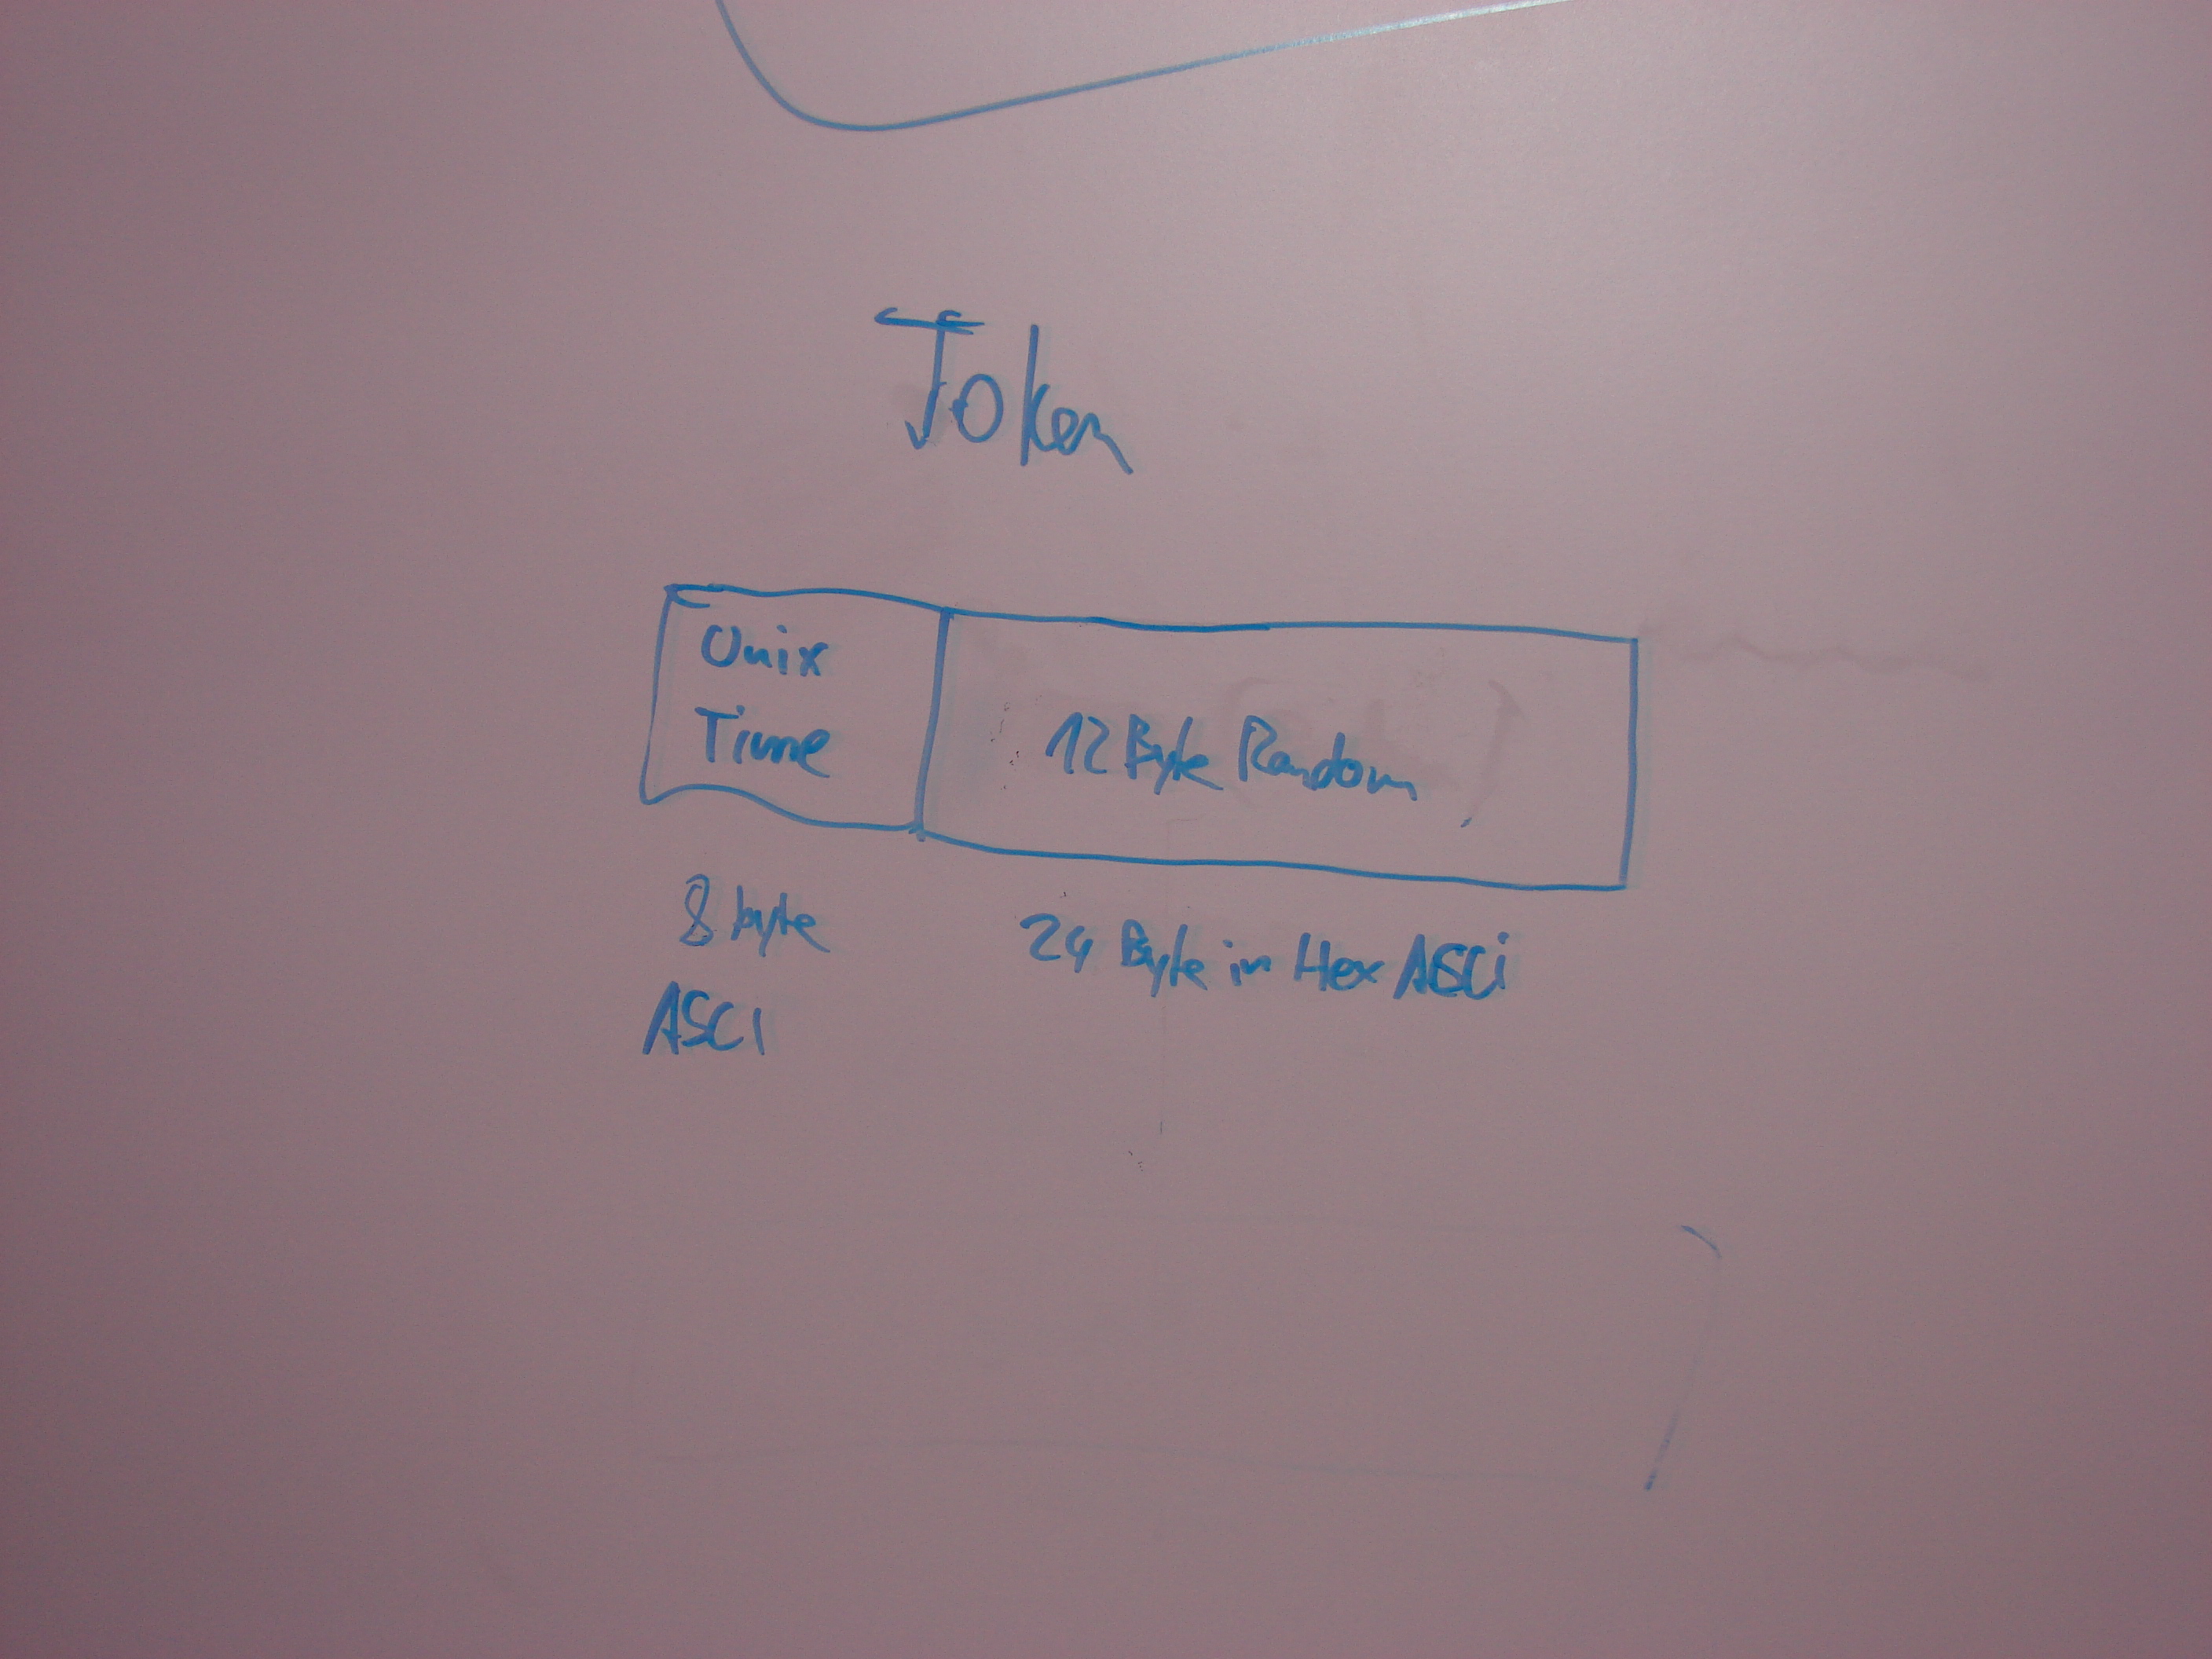 Token
Unix
Time
12 Byte Random
8 byte
ASCI
24 Byte in Hex ASCi